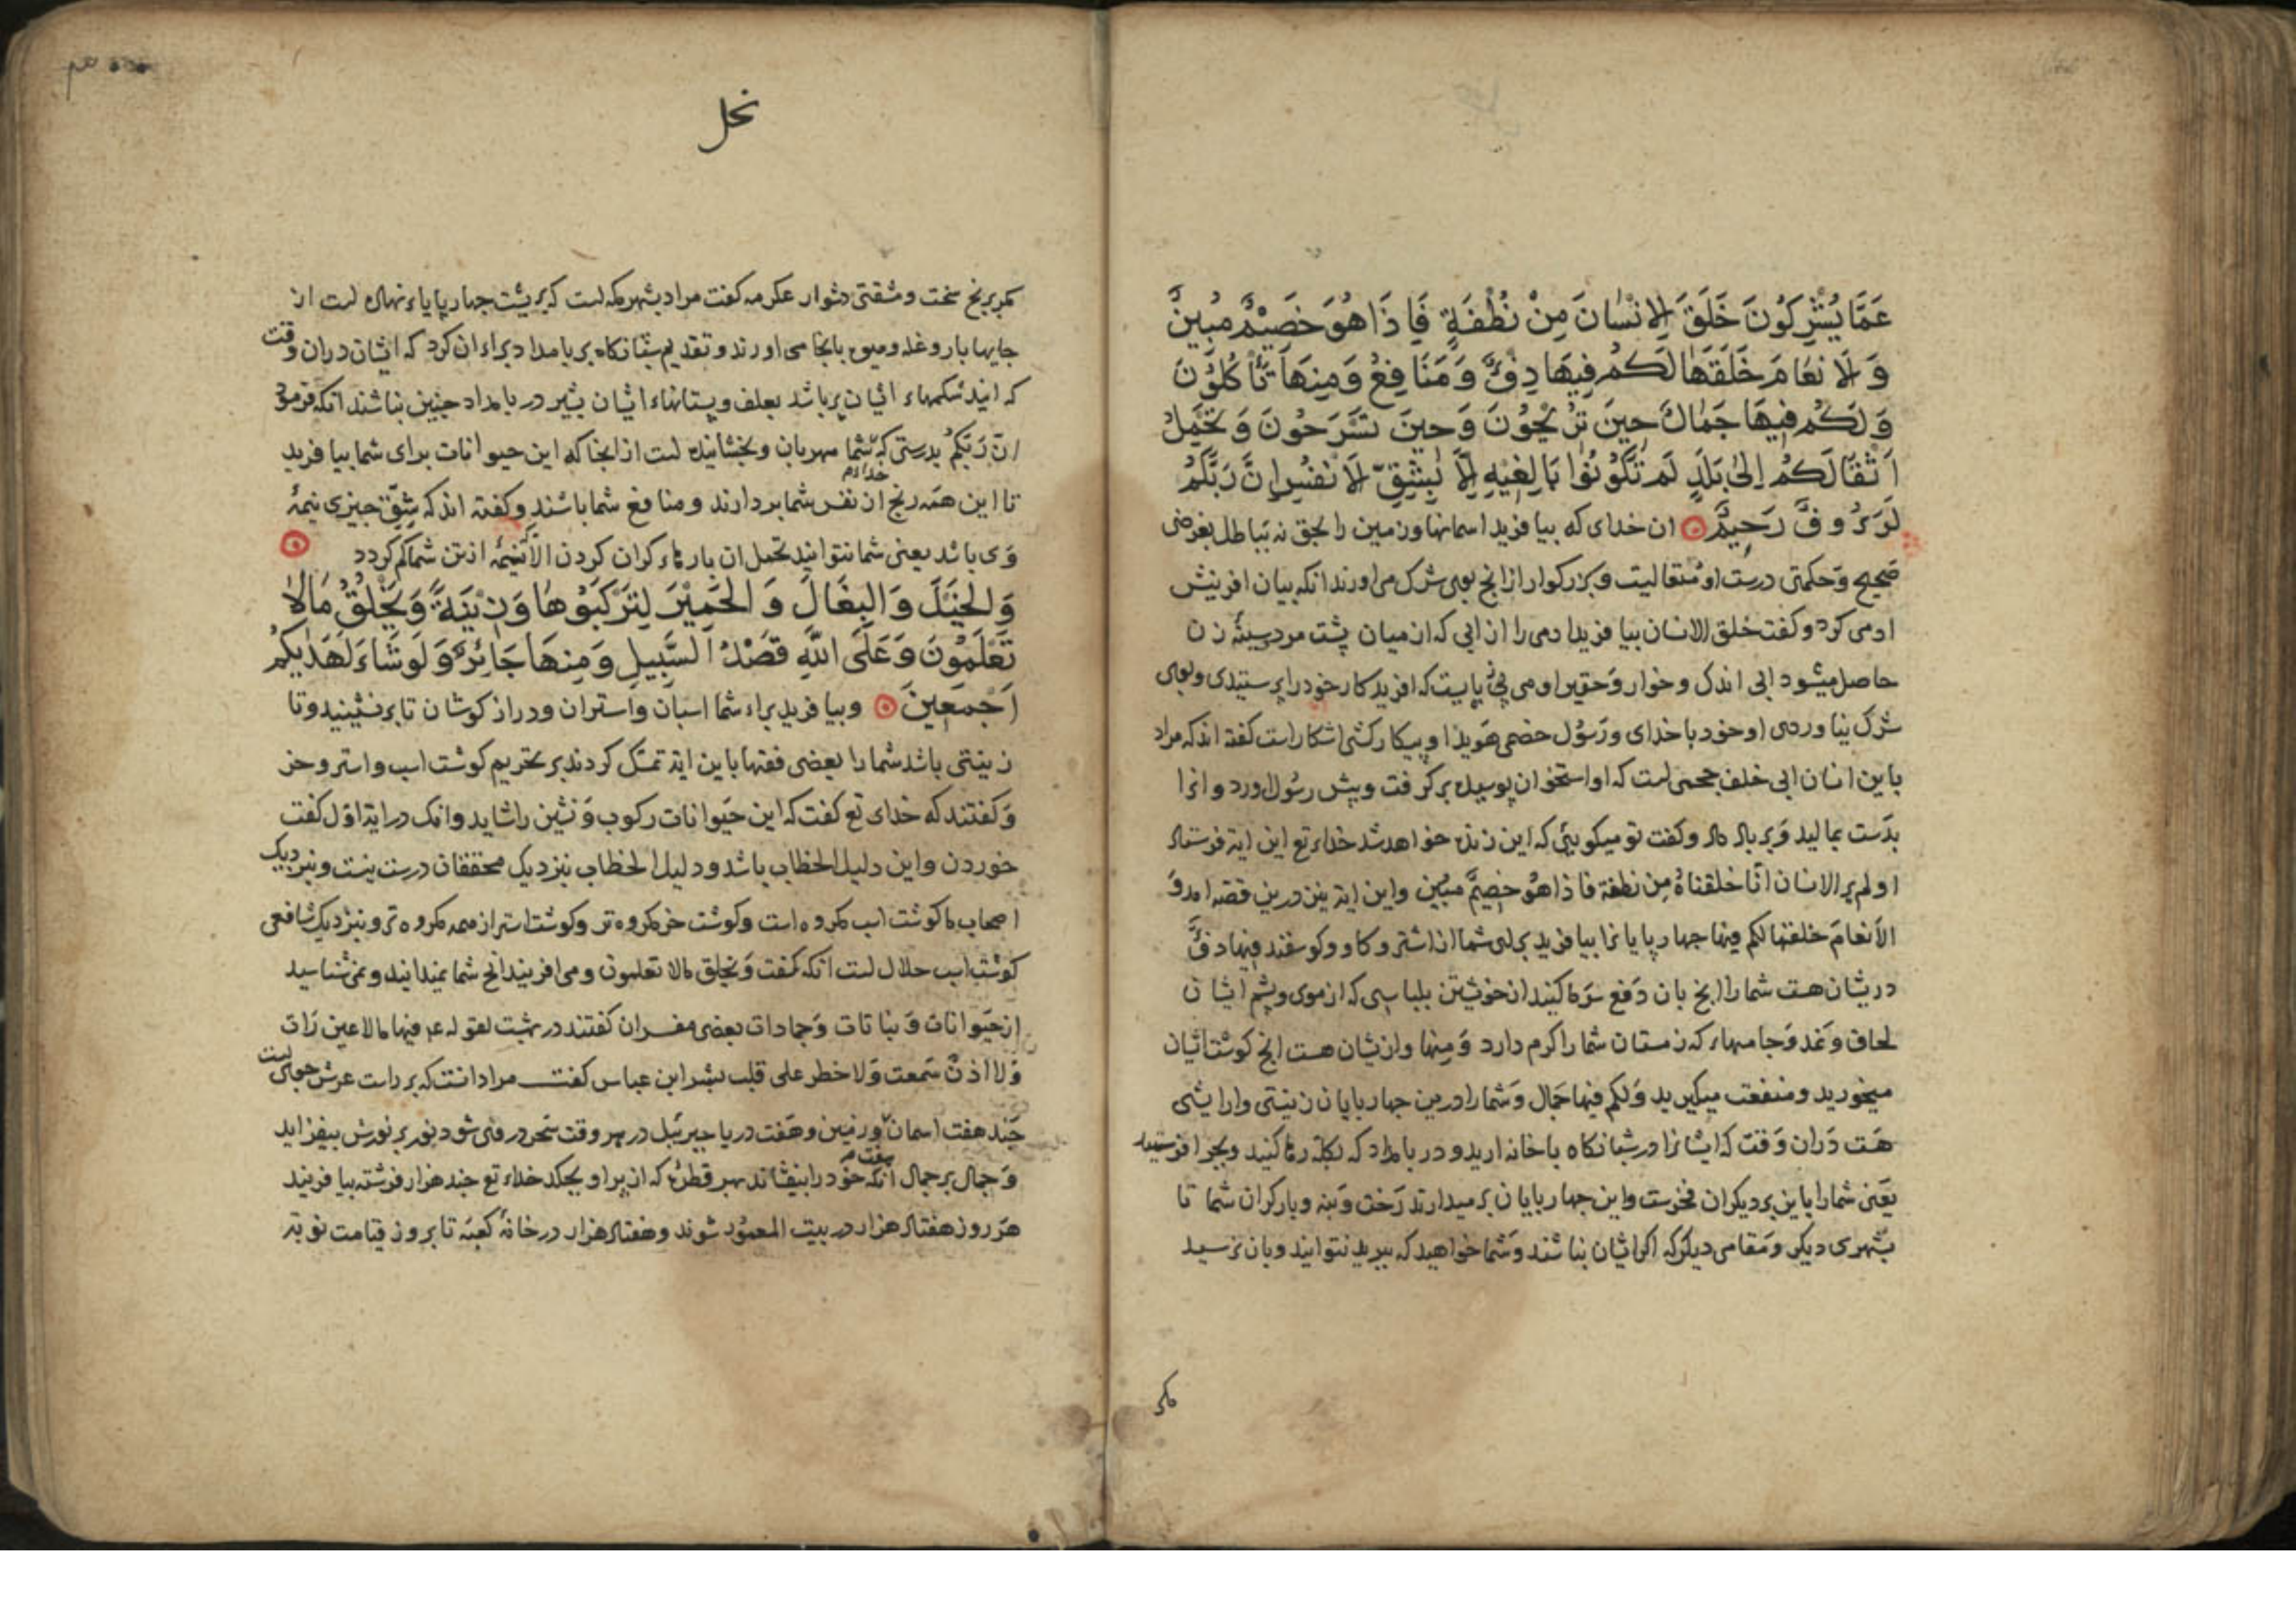 عَمَّا يُشْرِكُونَ خَلَقَ الِانْسَانَ مِنْ نُطْفَةٍ فَاِذَا هُوَ خَصِيْمٌ مُبِينٌ
وَ الَانْعَامَ خَلَقَهَا لَكُمْ فِيهَا دِفْءٌ وَمَنَافِعُ وَمِنهَا تَأْكُلُوْنَ
وَلَكُمْ فِيهَا جَمَالٌ حِينَ تُرِيْحُوْنَ وَحِينَ تَسْرَحُونَ وَتَحْمِلُ
اَثْقَالَكُمْ اِلىٰ بَلَدٍ لَم تَكُوْنُوْا بَالِغِيْهِ اِلَّا بِشِقِّ الَانْفُسِ اِنَّ رَبَّكُمْ
لَرَؤُوفٌ رَحِيمٌ ان خدای که بیافرید اسمانها وزمین را بحق نه بباطل بغرضی
صحیح وحکمتی درست او متعالیست وبزرکوار از انج بوی شرک می اورند انکه بیان افرینش
ادمی کرد وکفت خلق الانسان بیافرید ادمی را از ابی که از میان پشت مرد وسینهٔ زن
حاصل میشود ابی اندک وخوار وحقیر اومی بایست که افریدکار خود را پرستیدی وبوی
شرک نیاوردی او خود با خدای ورسول خصمی هویدا وپیکارکشی اشکار است کفته اند که مراد
باین انسان ابی خلف جحمی است که او استخوان پوسیده برکرفت وپیش رسول اورد وانرا
بدست بمالید وبر باد داد وکفت تو میکویی که این زنده خواهد شد خدای تع این ایة فرستاد
اولم یر الانسان انّا خلقناهُ مِن نطفة فاذا هُو خصیمٌ مبین واین ایة نیز درین قصّه امد وَ
الاَنعامَ خلقها لکم فیها جهارپایانرا بیافرید برای شما از اشتر وکاو وکوسفند فیها دفءٌ
دریشان هست شما را انج بان دَفع سرما کنید از خویشتن بلباسی که از موی وپشم ایشان
لحاف وَنمد وَجامهاء که زمستان شما را کرم دارد وَمِنها وازیشان هست انج کوشت ایشان
میخورید ومنفعت میکیرید وَلکم فیها جَمال وَشما را درین جهارپایان زینتی وارایشی
هَست دَران وَقت که ایشانرا در شبانکاه باخانه ارید ودر بامداد که بکله رها کنید وبجرا فرستید
یعَنی شما را باین بر دیکران فخرست واین جهارپایان برمیدارند رَخت وَبنه وبار کران شما تا
بشهری دیکر ومَقامی دیکر که اکر ایشان نباشند وَشما خواهید که ببرید نتوانید وبان نرسید
مکر
نحل
مکر برنج سخت ومشقتی دشوار عکرمه کفت مراد بشهر مکه است که بر پشت جهارپایاء نهاده است از
جایها بار وغله ومیوه بانجا می اورند وتقدیم شبانکاه بر بامداد براء ان کرد که ایشان دران وقت
که ایند شکمهاء ایشان پر باشد بعلف وپستانهاء ایشان بشیر در بامداد جنین نباشند انکه فرمود
انّ رَبّکمُ بدرستی که خداء شما مهربان وبخشاینده است از انجا که این حیوانات برای شما بیافرید
تا این همَه رنج از نفس شما بردارند ومنافع شما باشند وکفته اند که شِقّ جیزی نیمهٔ
وَی باشد یعنی شما نتوانید تحمل ان بارهاء کران کردن الّا نیمهٔ از تن شما کم کردد
وَ الْخَيْلَ وَالبِغَالَ وَ الْحَمِيْرَ لِتَرْكَبُوْهَا وَزِيْنَةً وَيَخْلُقُ مَالَا
تَعْلَمُوْنَ وَعَلَى اللهِ قَصْدُ السَّبِيلِ وَمِنهَا جَائِرٌ وَلَوشَاءَ لَهَدٰيكُمْ
اَجْمَعِينَ وبیافرید براء شما اسبان واستران ودراز کوشان تا برنشینید وتا
زینتی باشد شما را بعضی فقها باین ایة تمسّک کردند بر تحریم کوشت اسب واستر وخر
وَکفتند که خدای تع کفت که این حَیوانات رکوب وَنشین را شاید وانک در ایة اوّل کفت
خوردن واین دلیل الخطاب باشد ودلیل الخطاب نزدیک محققان درست نیست ونزدیک
اصحاب ما کوشت اسب مکروه است وکوشت خر مکروه تر وکوشت استر از همه مکروه تر ونزدیک شافعی
کوشت اسب حلال است انکه کفت وَیخلق مالا تعلمون ومی افریند انج شما نمیدانید ونمی شناسید
از حَیوانات وَنباتات وَجمادات بعضی مفسران کفتند در بهشت لقوله ع م فیها مالا عین رَات
وَلا اذنٌ سَمعت وَلا خطر علی قلب بشر ابن عباس کفت مراد انست که بر راست عرش جویی است
جَند هفت اسمان وهفت زمین وهَفت دریا جبرئیل در هر وقت سَحر در وی شود نور بر نورش بیفزاید
وَجمال بر جمال انکه خوَد را بیفشاند بهر قطرهٔ که از پر او بجکد خداء تع جند هزار فرشته بیافریند
هرَ روز هفتاد هزار در بیت المعمُور شوند وهفتاد هزار در خانهٔ کعبَه تا بروز قیامت نوبة